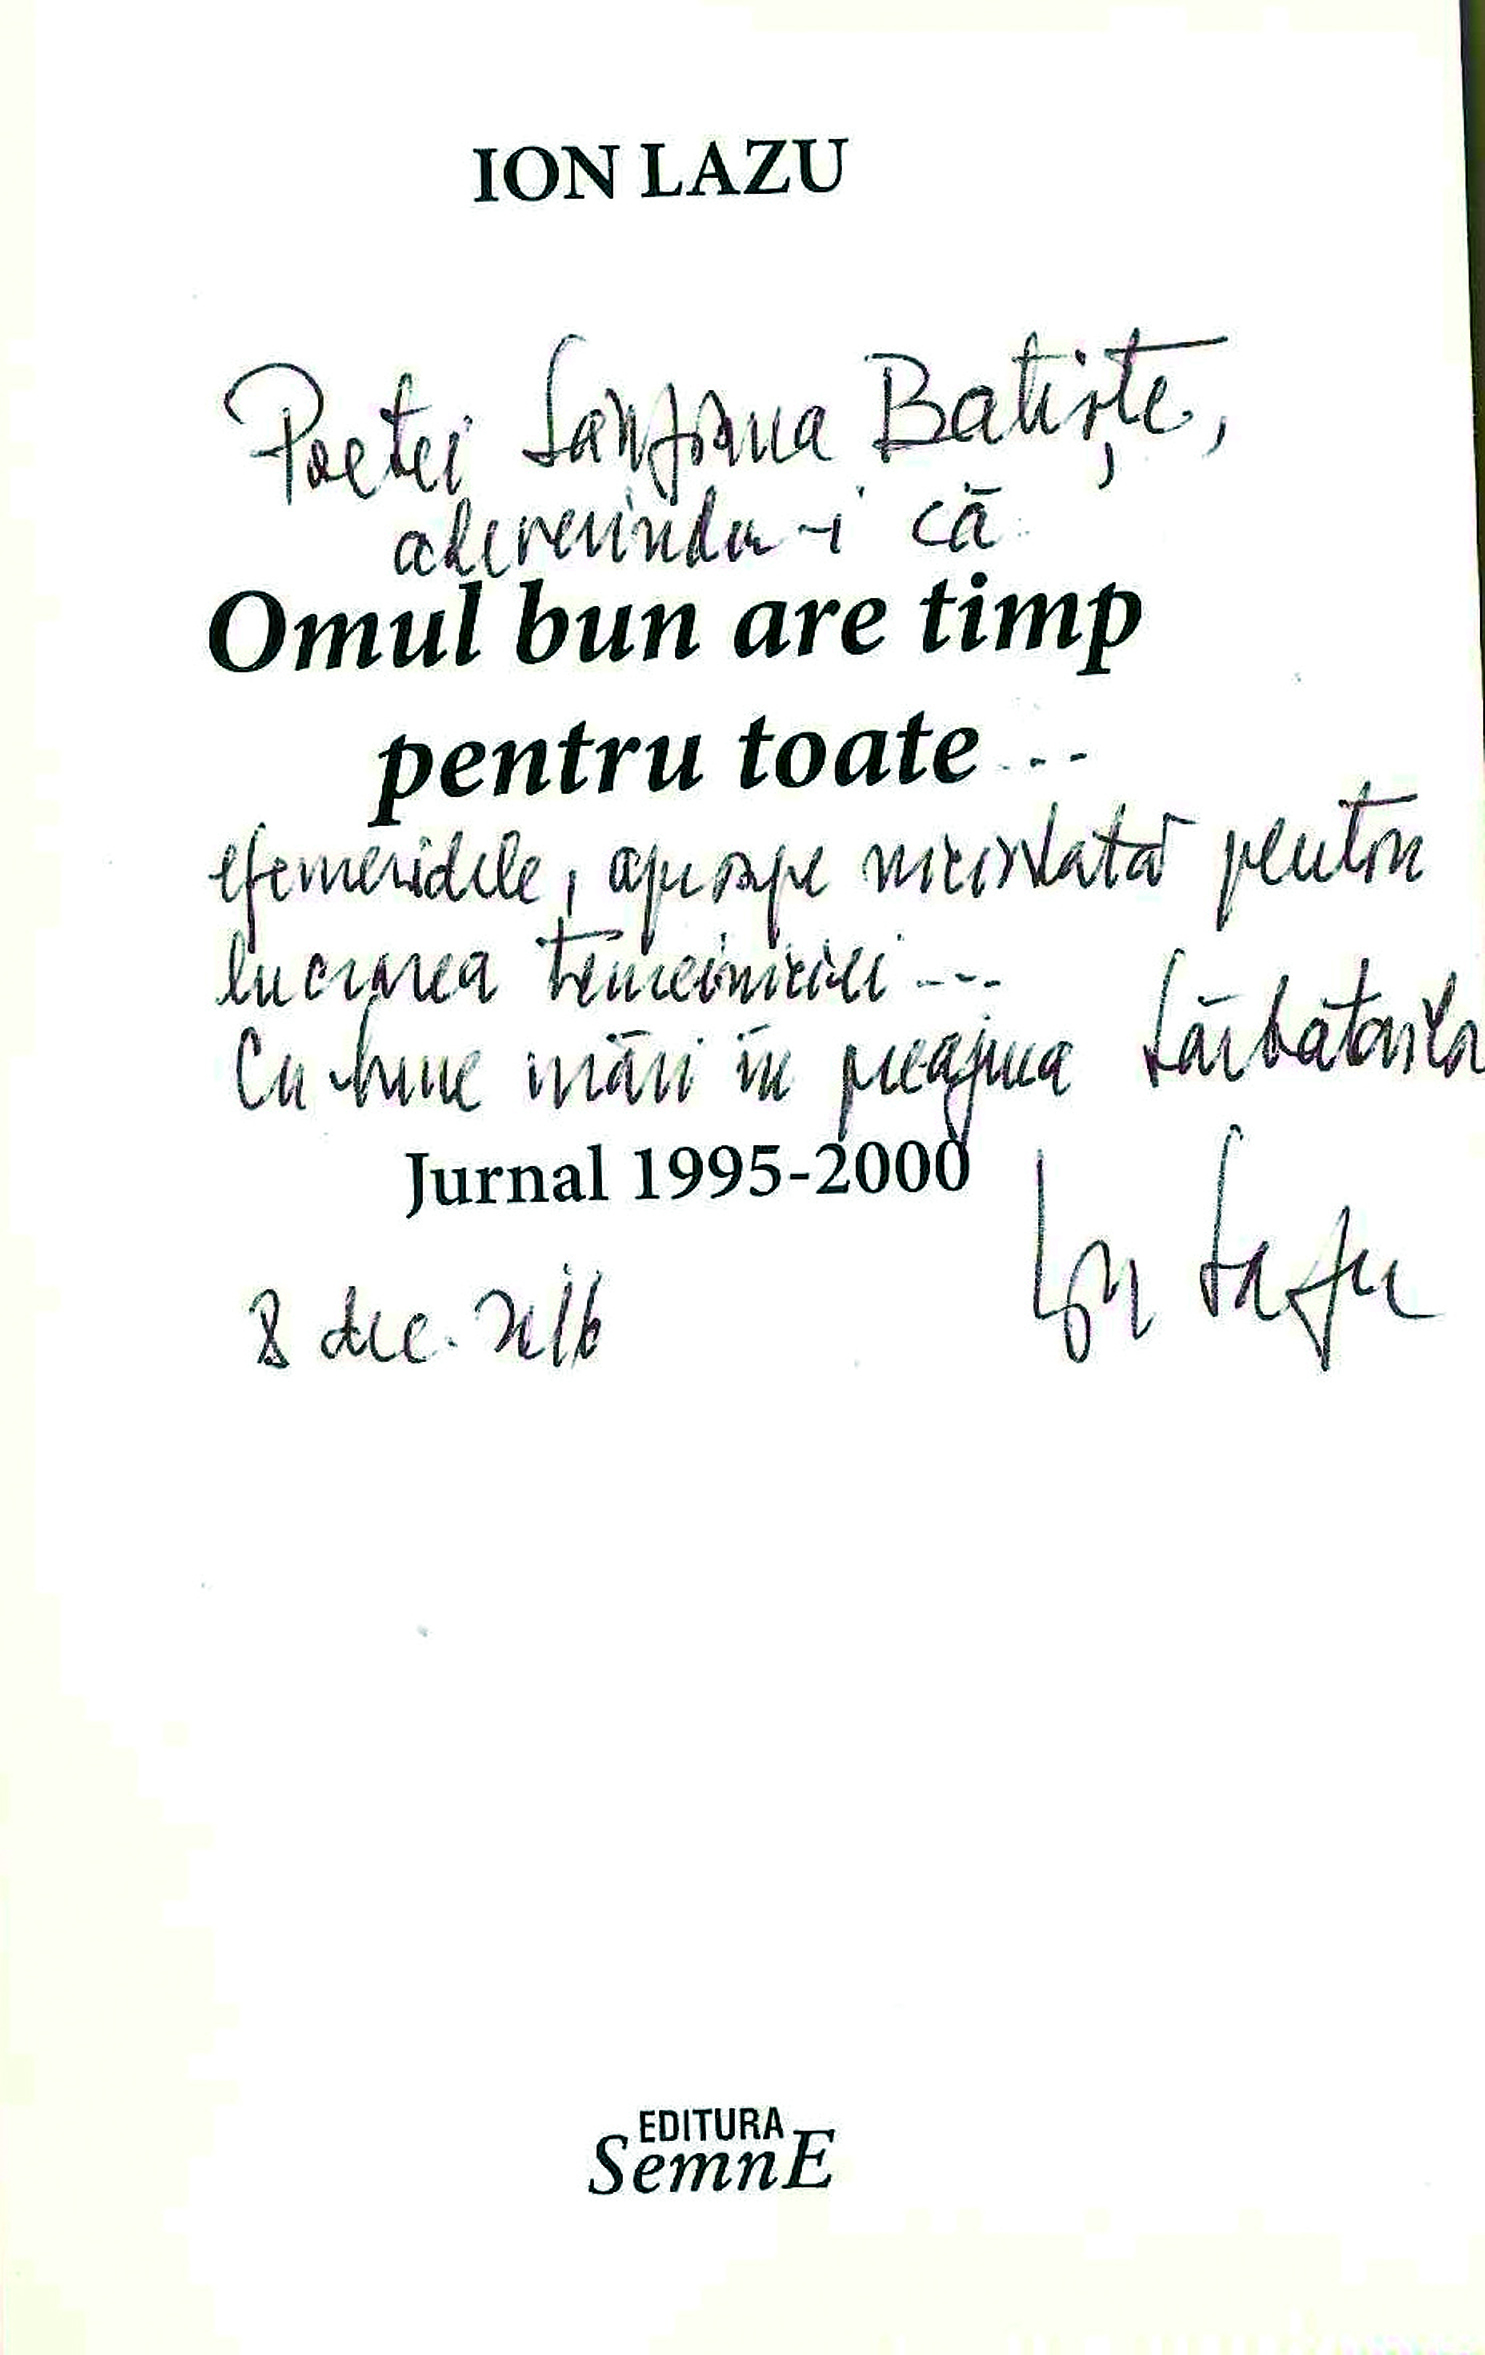 ION LAZU
Poetei Sânziana Batiște,
adeverindu-i că
Omul bun are timp
pentru toate...
efemeridele, aproape niciodată pentru
lucrarea temeiniciei...
Cu bune urări în preajma Sărbătorilor
Jurnal 1995-2000
Ion Lazu
8 dec. 2016
EDITURA
SemnE